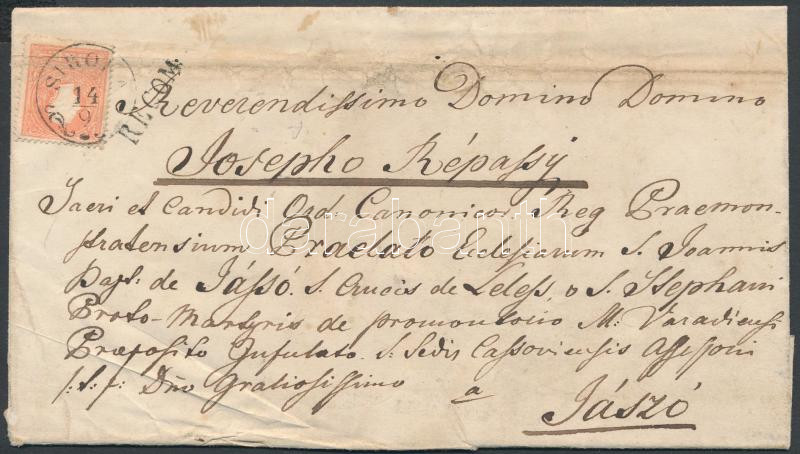 14
9
RECOM.
Reverendissimo Domino Domino
Josepho Répassÿ
Sacri et Candidi Ord. Canonicor. Reg Praemon-
stratensium Praelato Ecclesiarum S. Joannis
Bapt: de Jászó. S. Crucis de Lelesz, o S. Stephani
Proto-Martyris de promontorio M: Varadiensi
Praeposito Infulato. S. Sedis Cassoviensis Assessori
s: s: s: Dno Gratiosissimo a
Jászó
darabanth